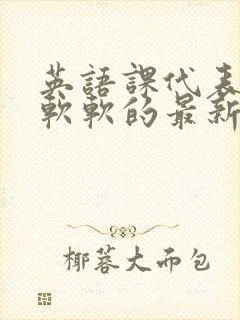 英語課代表
軟軟的最新
椰蓉大而包